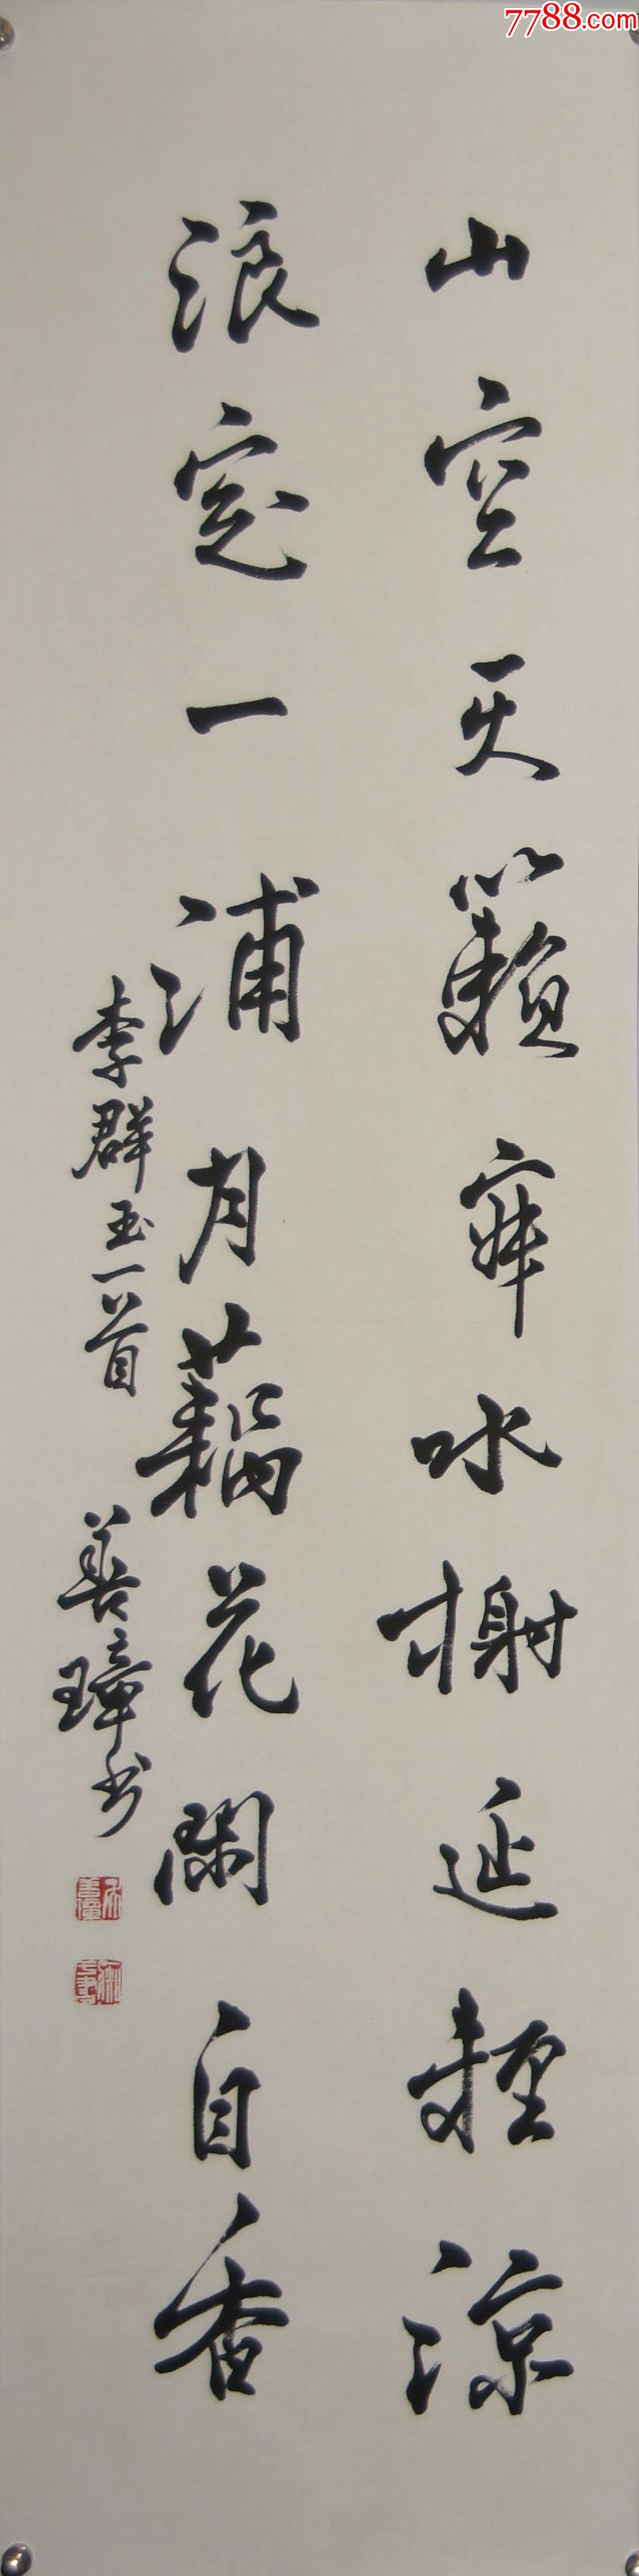 7788.com
山空天籟寂水榭延輕涼
浪定一浦月藕花閑自香
李群玉一首
善璋书